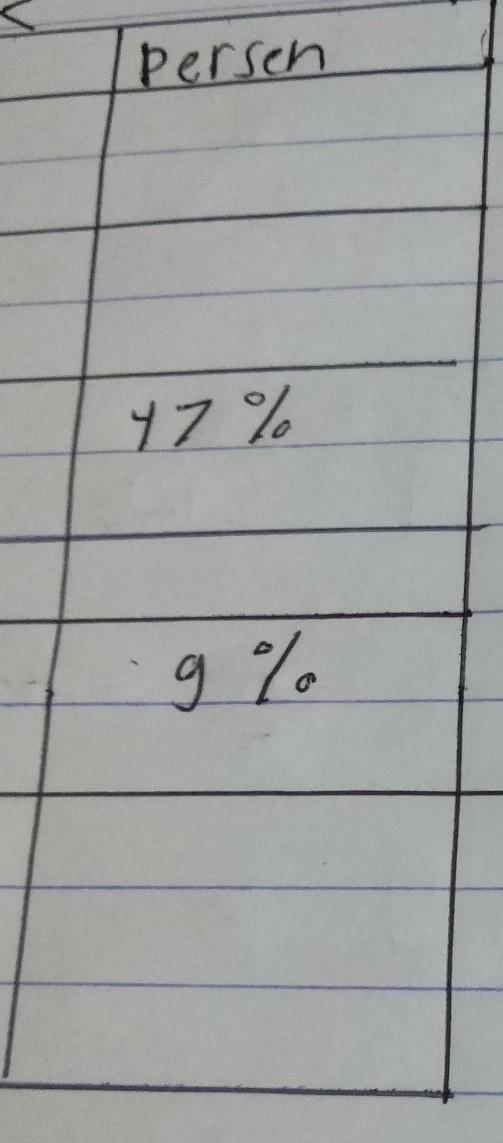 persen
47%
9%